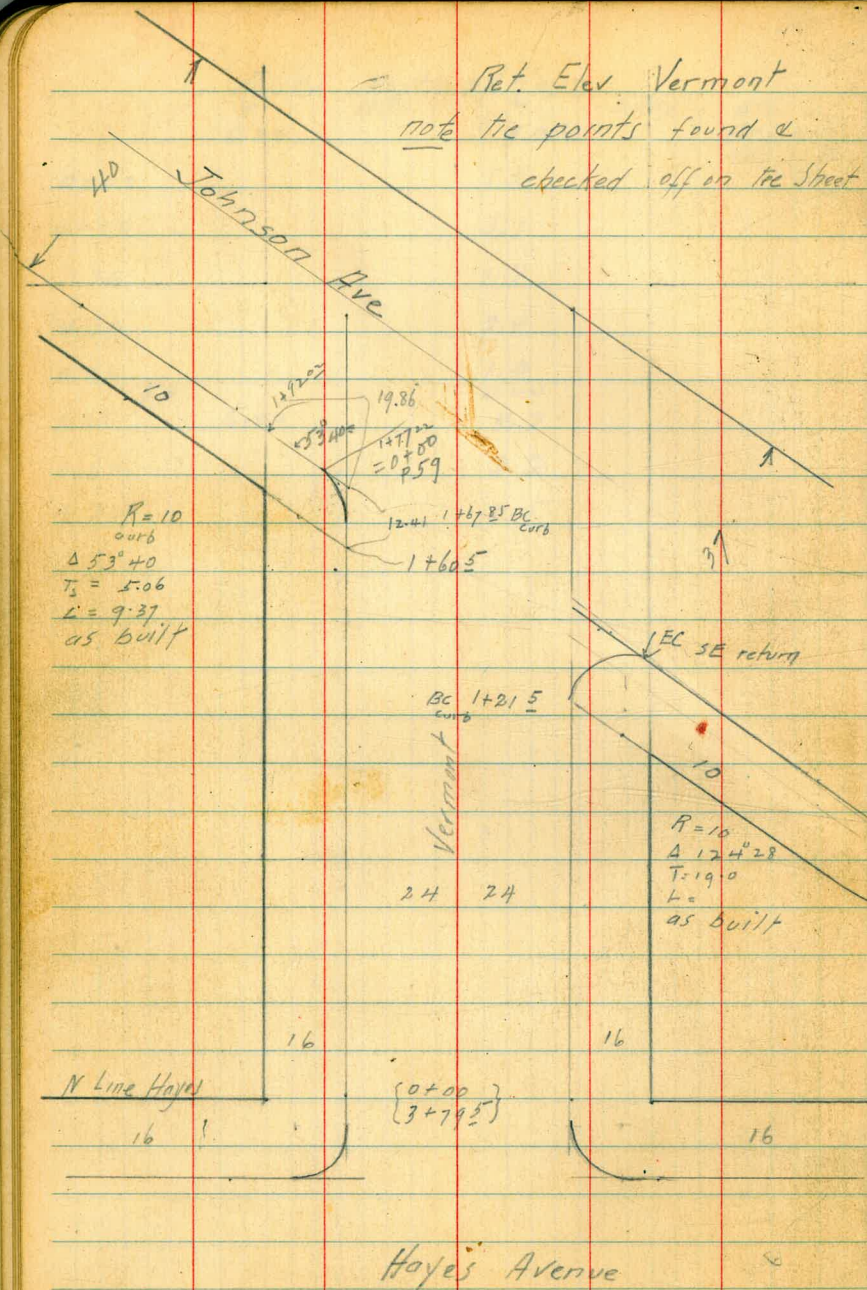 Ret. Elev Vermont
note tie points found &
checked off on tie sheet
40
Johnson Ave
10
1+92 02
19.86
53° 40
1+77 22
= 0+00
p59
12.41 1+67 85 BC
curb
1+60 5
R = 10
curb
Δ 53° 40
Ts = 5.06
L = 9.37
as built
EC SE return
BC 1+21 5
curb
Vermont
10
R = 10
Δ 124° 28
T = 19.0
L =
as built
24 24
16 16
N Line Hayes
{0+00
{3+79 5}
16 16
Hayes Avenue